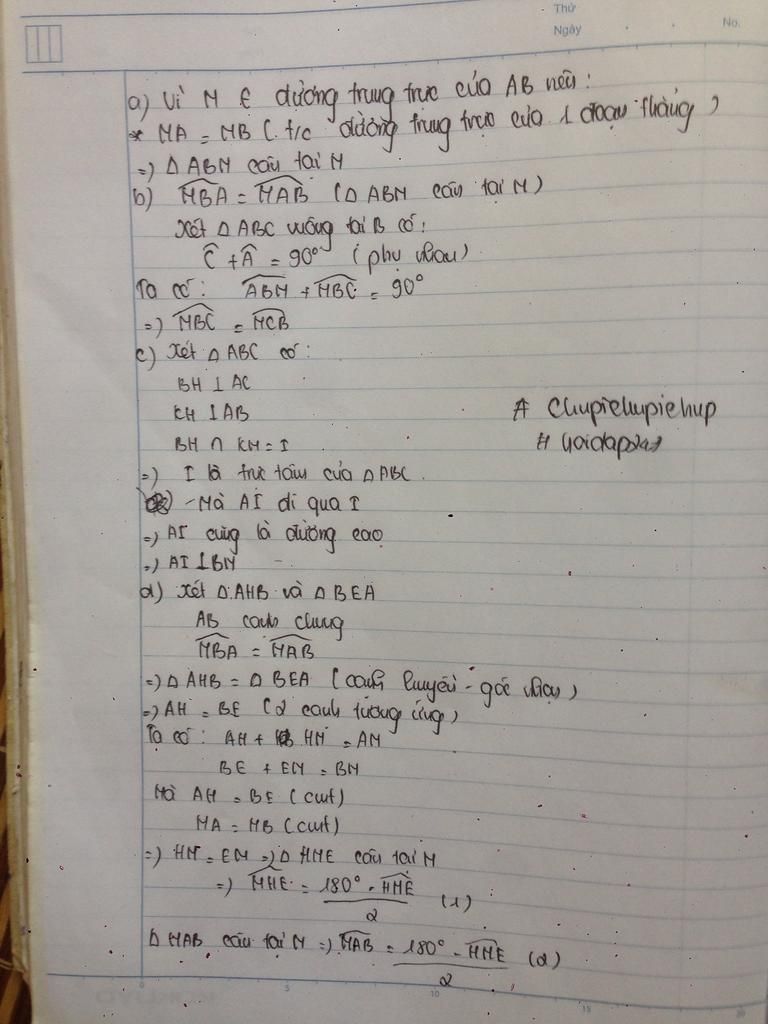 Thứ
Ngày
No.
a) Vì M ∈ đường trung trực của AB nên:
* MA = MB ( t/c đường trung trực của 1 đoạn thẳng )
=) △ ABM cân tại M
b) \widehat{MBA} = \widehat{MAB} ( △ ABM cân tại M )
Xét △ ABC vuông tại B có:
\widehat{C} + \widehat{A} = 90° ( phụ nhau )
Ta có: \widehat{ABM} + \widehat{MBC} = 90°
=) \widehat{MBC} = \widehat{MCB}
c) Xét △ ABC có:
BH ⊥ AC
KH ⊥ AB
BH ∩ KM = I
=) I là trực tâm của △ ABC.
- Mà AI đi qua I
=) AI cũng là đường cao
=) AI ⊥ BM
d) Xét △ AHB và △ BEA
AB cạnh chung
\widehat{MBA} = \widehat{MAB}
=) △ AHB = △ BEA ( cạnh huyền - góc nhọn )
=) AH = BE ( 2 cạnh tương ứng )
Ta có: AH + HM = AM
BE + EM = BM
Mà AH = BE ( cmt )
MA = MB ( cmt )
=) HM = EM =) △ HME cân tại M
=) \widehat{MHE} = \frac{180° - \widehat{HME}}{2} (1)
△ MAB cân tại M =) \widehat{MAB} = \frac{180° - \widehat{HME}}{2} (2)
# Chupichupichup
0 5 10 15 20